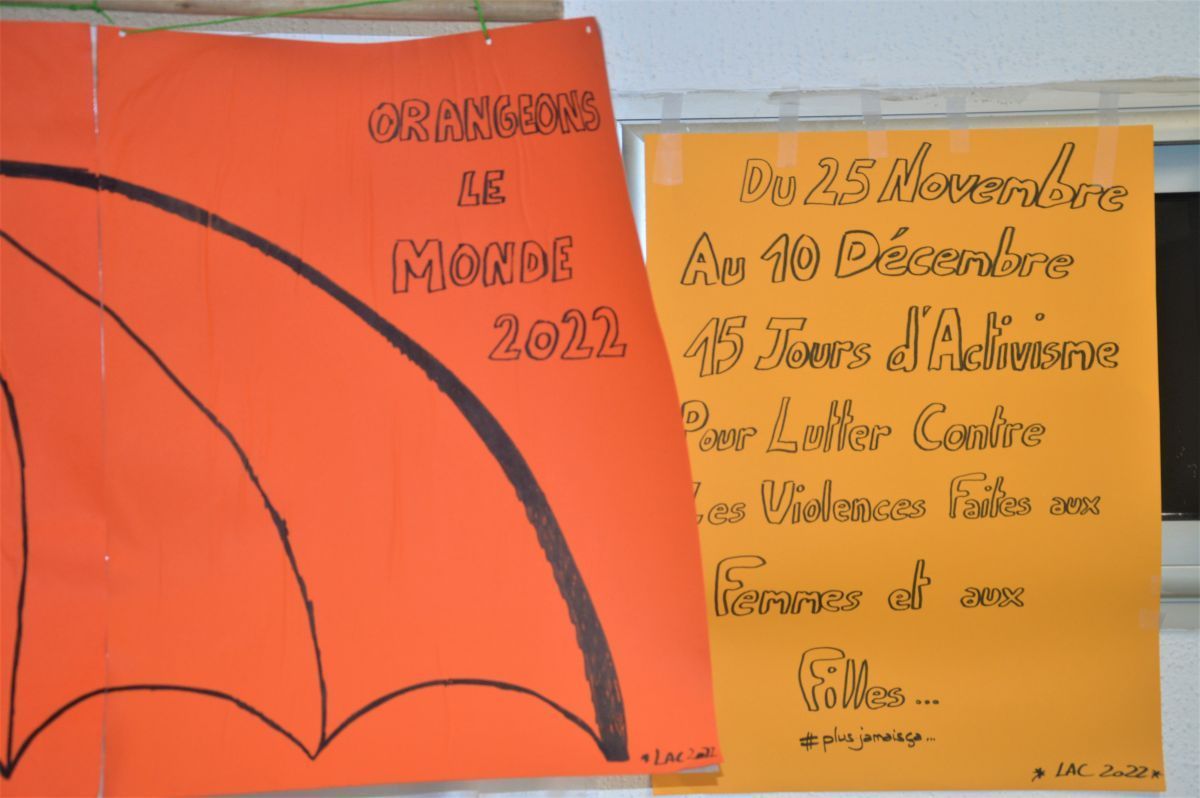 ORANGEONS
LE
MONDE
2022
*LAC 2022
Du 25 Novembre
Au 10 Décembre
15 Jours d'Activisme
Pour Lutter Contre
Les Violences Faites aux
Femmes et aux
Filles...
#plusjamaisça...
* LAC 2022*